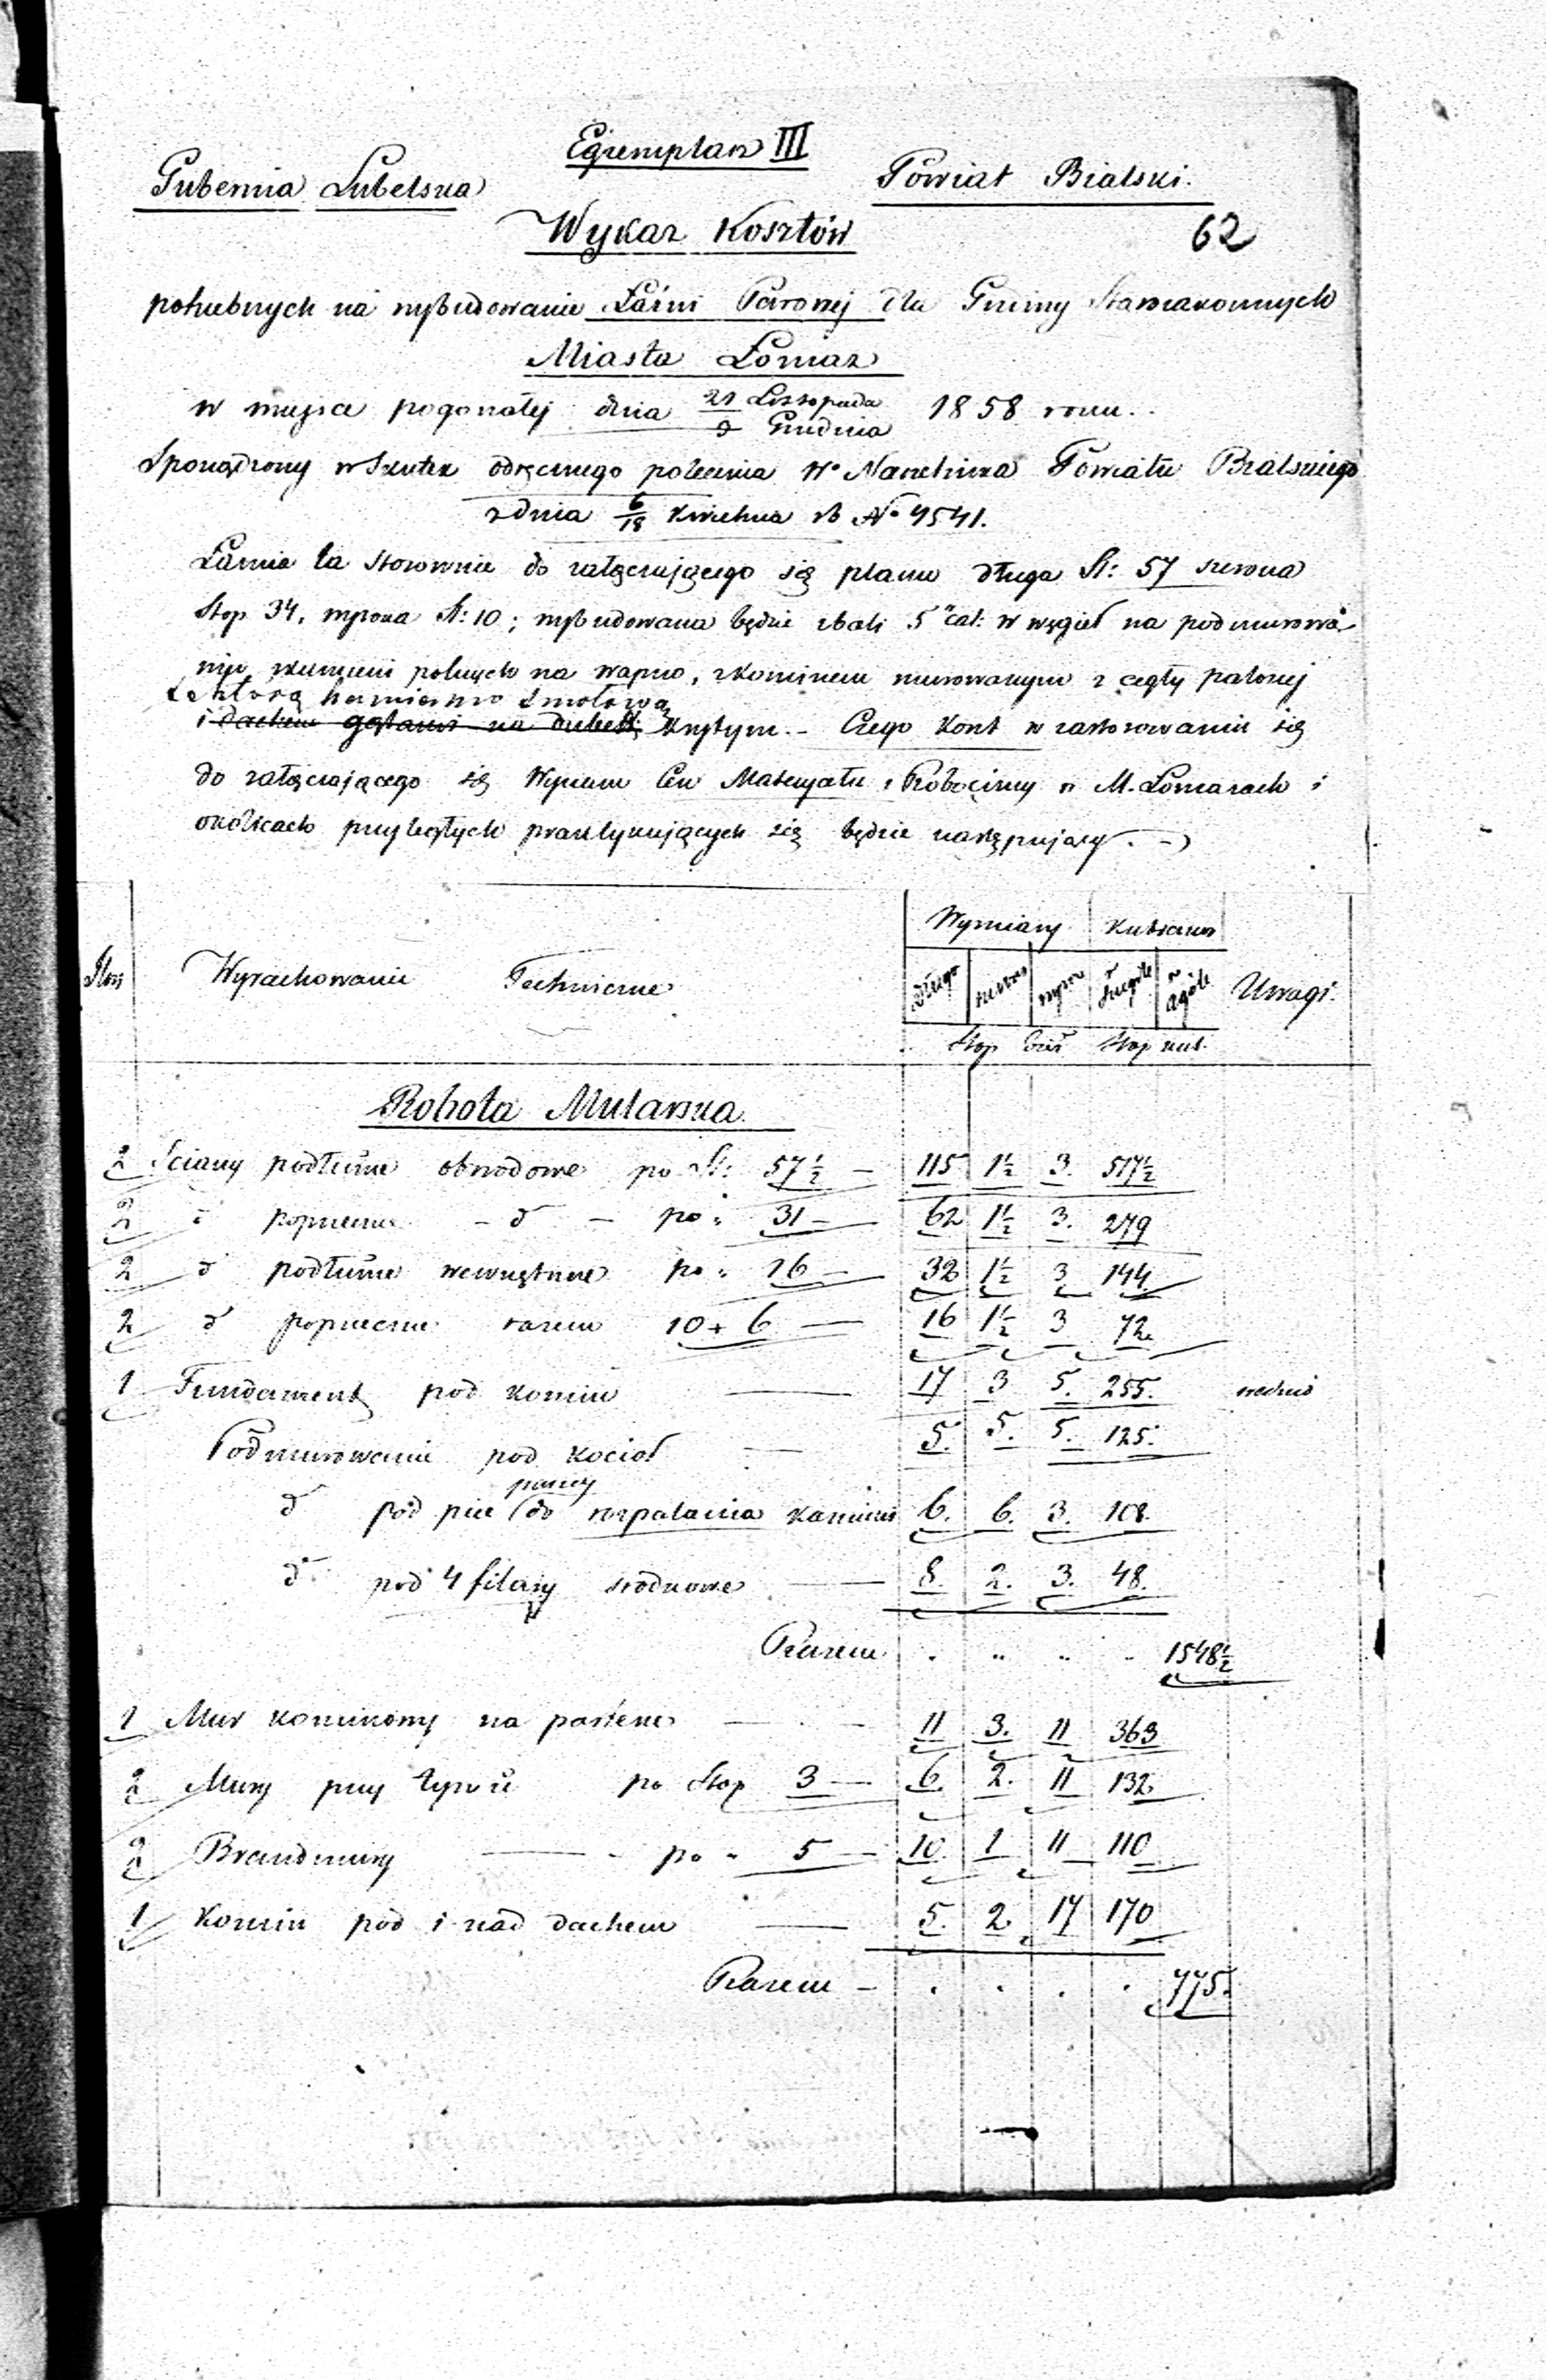 Egzemplarz III
Gubernia Lubelska
Powiat Bialski.
Wykaz Kosztów
62
potrzebnych na wybudowanie Łaźni Parowej dla Gminy Starozakonnych
Miasta Łomaz
w miejsce pogorzałej dnia 21 Listopada / 3 Grudnia 1858 roku.
Sporządzony w Skutek odręcznego polecenia Wo Naczelnika Powiatu Bialskiego
z dnia 6/18 Kwietnia rb No 4541.
Łaźnia ta stosownie do załączającego się planu długa St: 57 szeroka
Stop 34, wysoka St: 10; wybudowana będzie z bali 5" cal: w węgieł na podmurowa-
niu z kamieni polnych na wapno, z kominem murowanym z cegły palonej
Tekturą kamienno Smołową
i dachem gątami na krytym. - Czego Koszt w zastosowaniu się
do załączającego się Wykazu Cen Materyału i Robocizny w M. Łomazach i
okolicach przyległych praktykujących się będzie następujący. -
Wymiary Kubiczne
Ilość Wyrachowanie Techniczne długo szeroko wysoko w szczególe w ogóle Uwagi.
Stop Stop kub.
Robota Mularska
2 Ściany podłużne obwodowe po St: 57 1/2 — 115 1 1/2 3. 517 1/2
2 d poprzeczne - d - po " 31 — 62 1 1/2 3. 279
2 d podłużne wewnętrzne po " 16 — 32 1 1/2 3 144
2 d poprzeczne razem 10 + 6 — 16 1 1/2 3 72.
1 Fundament pod komin — 17 3 5. 255. średnio
Podmurowanie pod kocioł — 5. 5. 5. 125.
parny
d pod piec (do rozpalania kamieni 6. 6. 3. 108.
d pod 4 filary środkowe — 8. 2. 3. 48.
Razem . " " " 1548 1/2
1 Mur kominowy na parterze — 11 3. 11 363
2 Mury przy po Stop 3 — 6. 2. 11 132.
2 Brandmury — po " 5 — 10. 1 11 110
1 Komin pod i nad dachem — 5. 2. 17 170
Razem - . . . . 775.